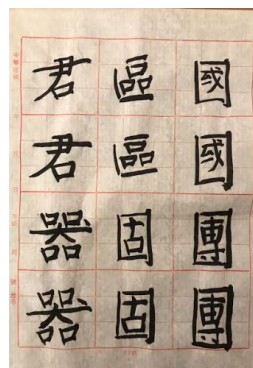 國國團團
區區固固
君君器器